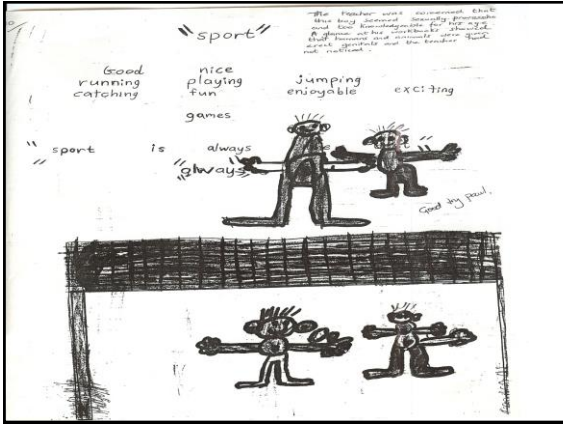 The teacher was concerned that
this boy seemed sexually precocious
and too knowledgeable for his age
A glance at his workbooks showed
that humans and animals were given
erect genitals and the teacher had
not noticed.
"sport"
Good nice
running playing jumping
catching fun enjoyable exciting
games
" sport is always "
"always"
Good try paul.